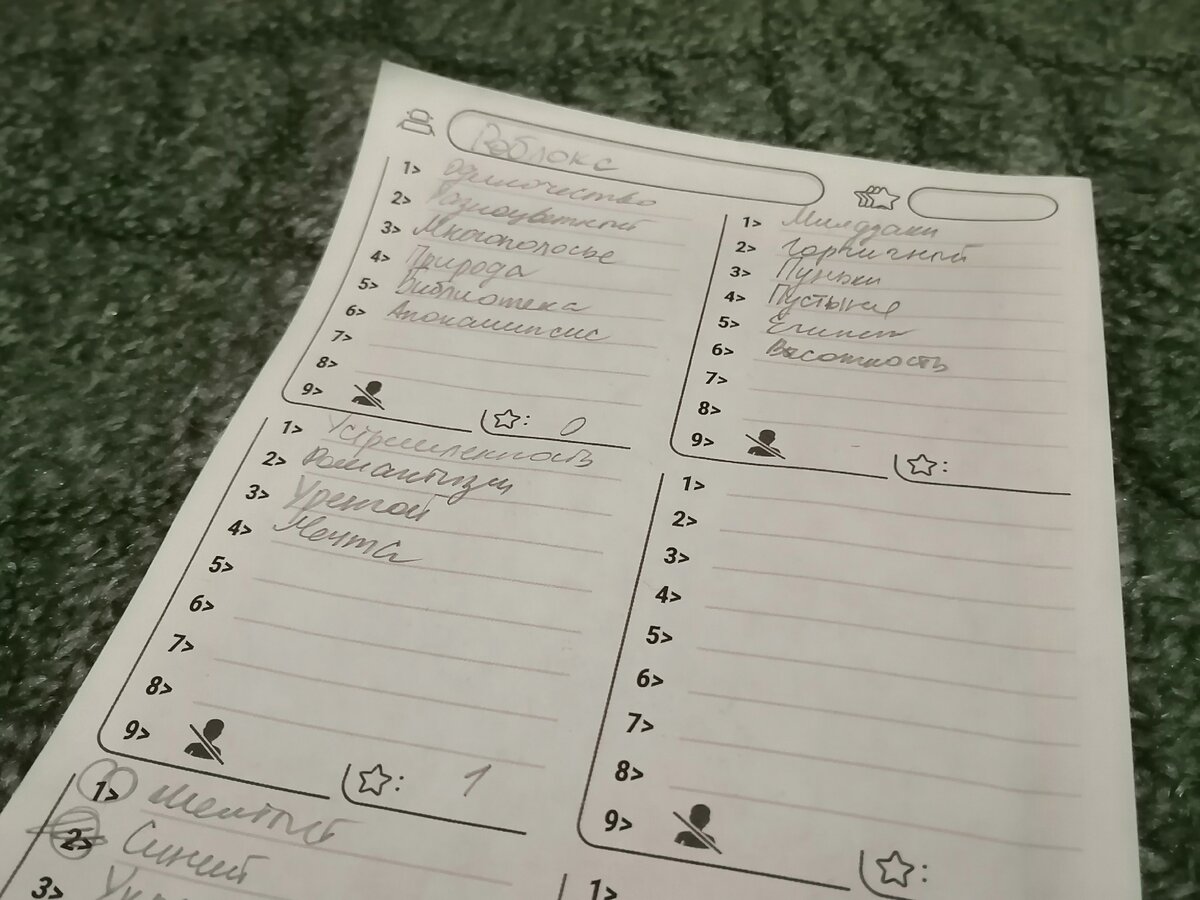 Роблокс
1> Одиночество
2> Разноцветный
3> Многополосье
4> Природа
5> Библиотека
6> Апокалипсис
7>
8>
9>
: 0
1>
2> Горничный
3> Пуньки
4> Пустыня
5> Египет
6> Высотность
7>
8>
9>
:
1> Устремленность
2> Романтизм
3> Уренгой
4> Мечта
5>
6>
7>
8>
9>
: 1
1>
2>
3>
4>
5>
6>
7>
8>
9>
:
1> Желтый
2> Синий
3>
1>